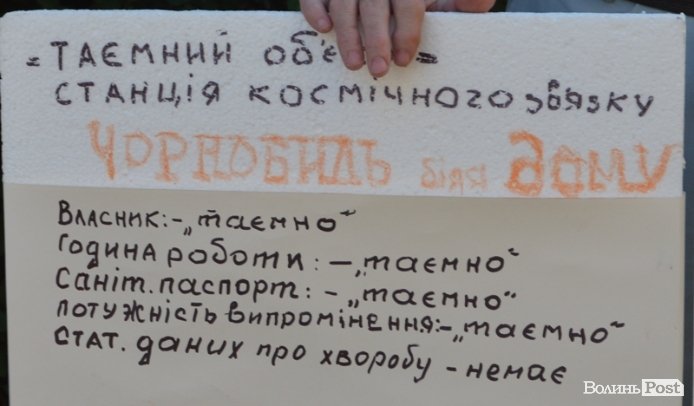 "ТАЄМНИЙ ОБ'Є
СТАНЦІЯ КОСМІЧНОГО ЗВ'ЯЗКУ
ЧОРНОБИЛЬ біля ДОМУ
ВЛАСНИК:-„таємно“
ГОДИНА РОБОТИ: –„таємно“
Саніт. паспорт: - „таємно“
потужність випромінення:-„таємно“
СТАТ. даних про хворобу - немає
ВолиньPost